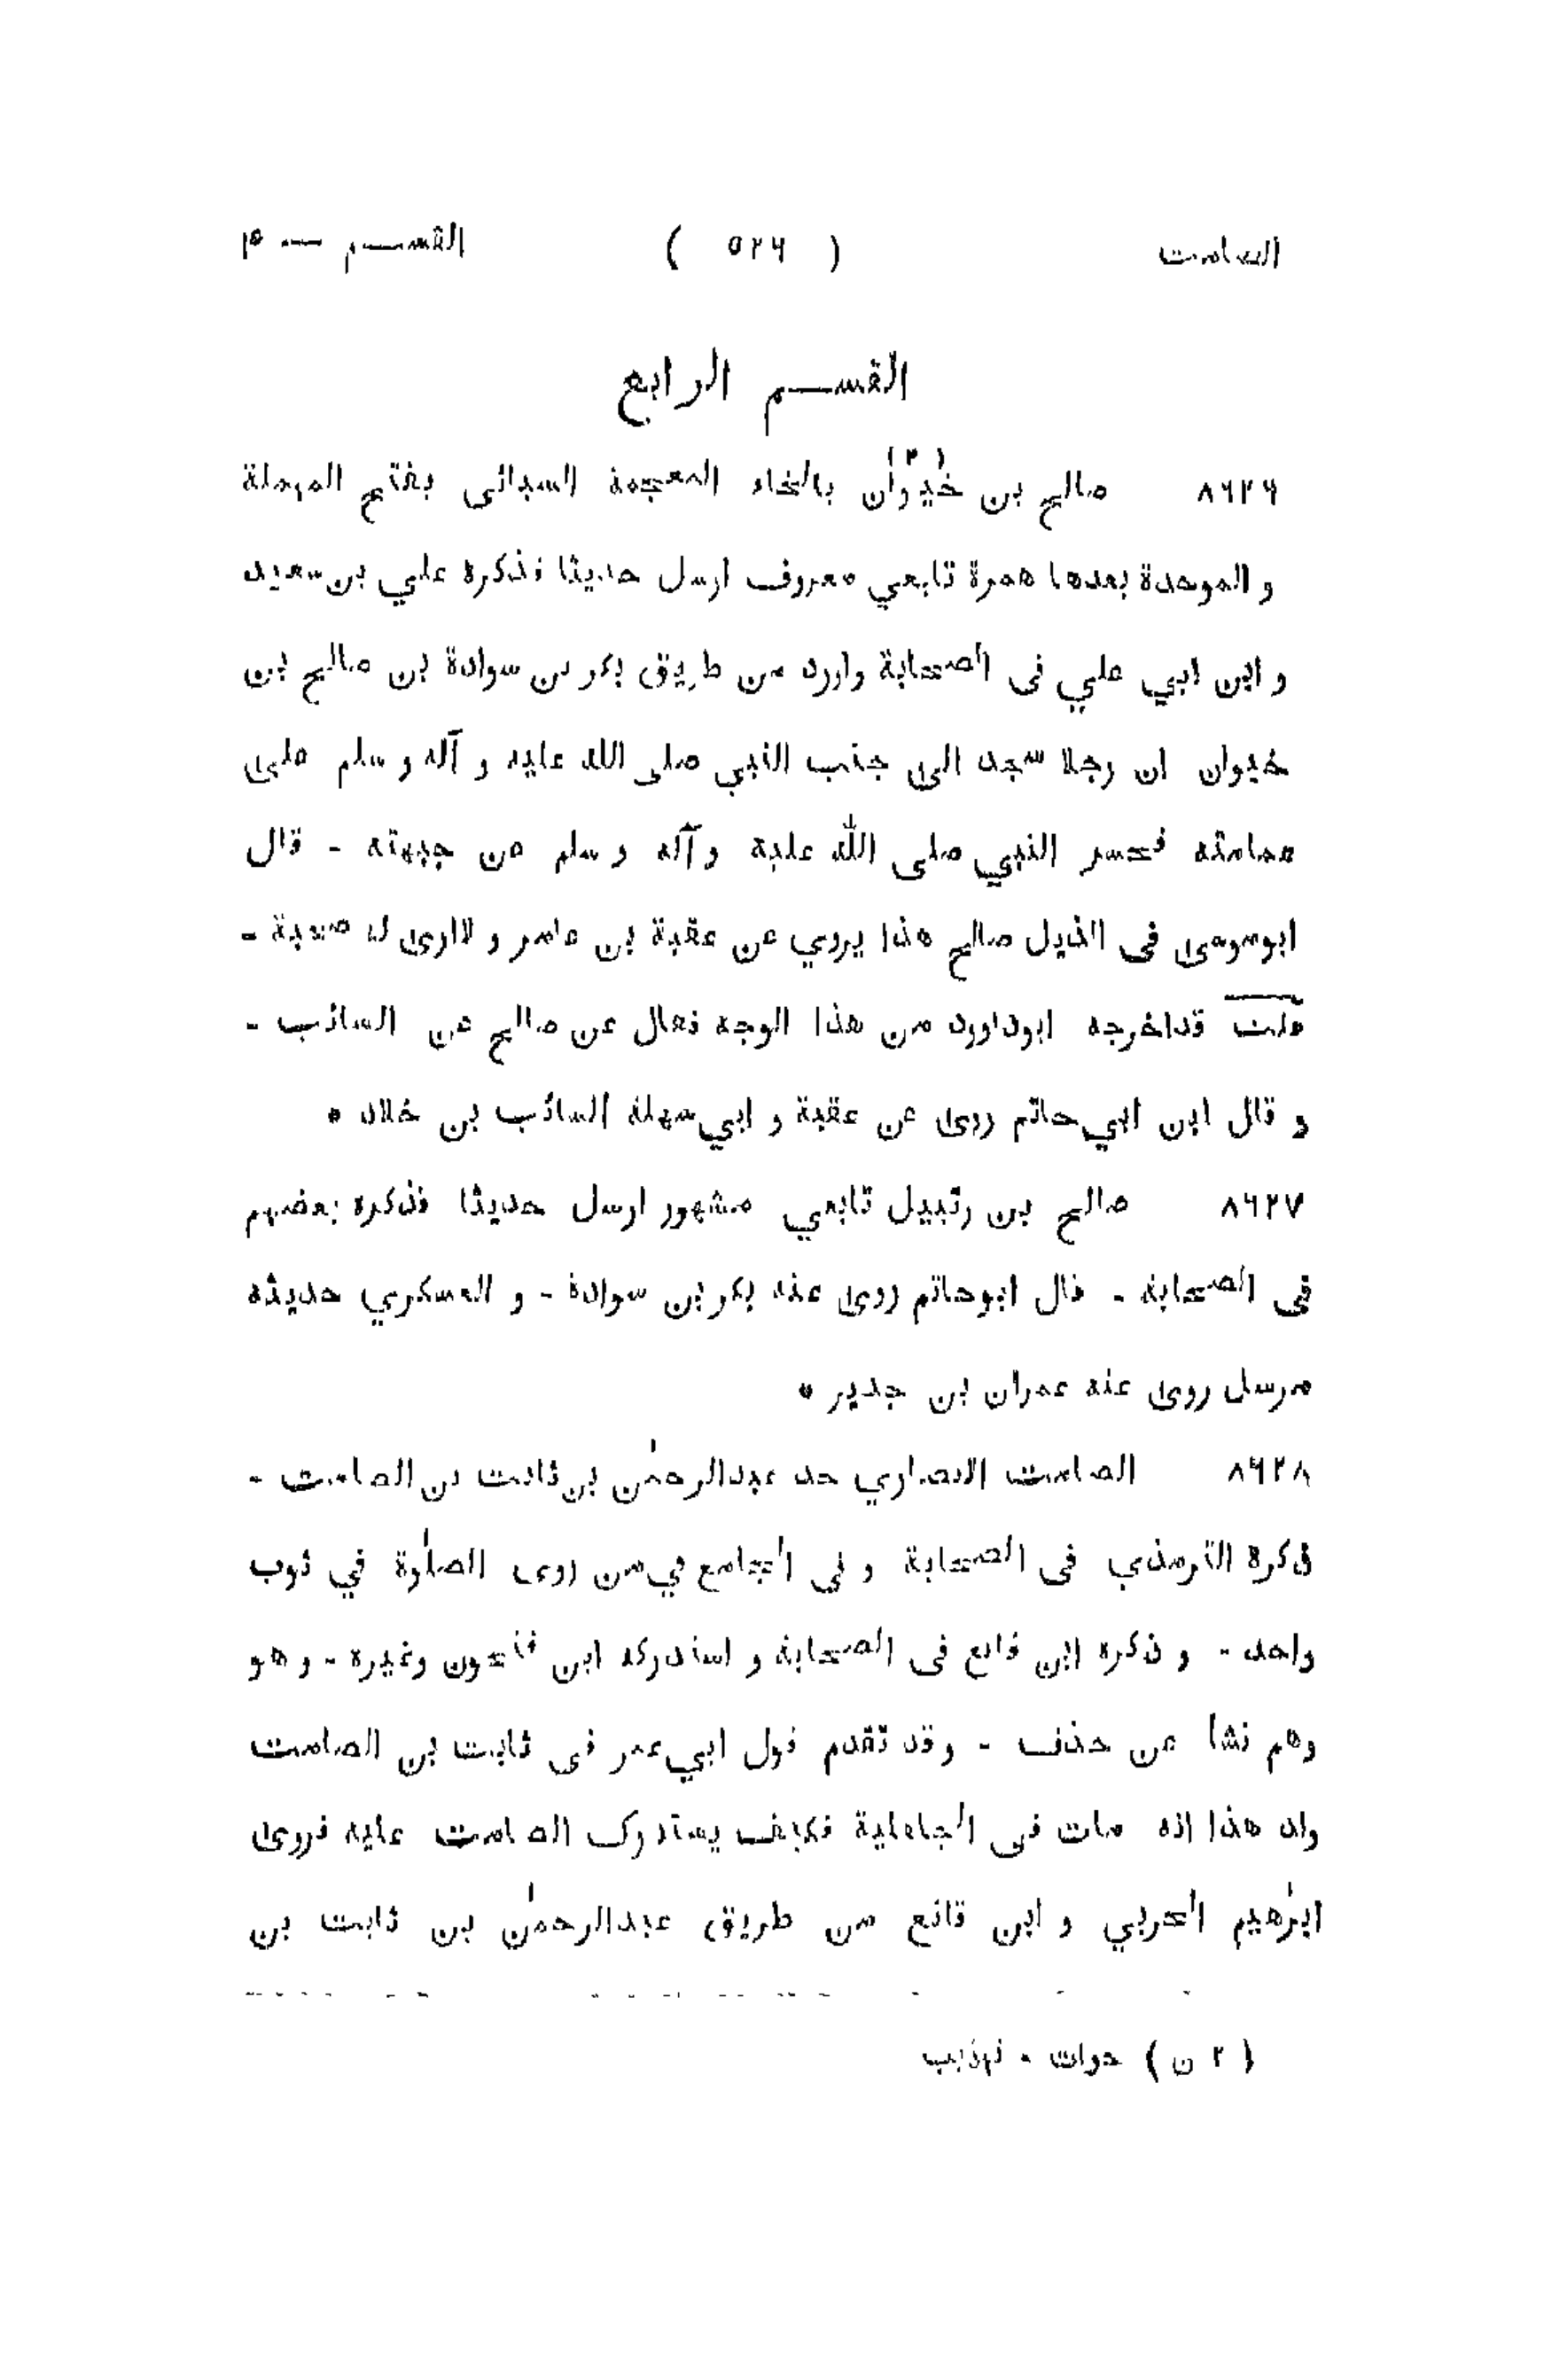 الصامت ( ٥٢٦ ) القسم — ٤
القسم الرابع
٨٦٢٦ صالح بن خيوان (٢) بالخاء المعجمة السبائى بفتح المهملة
و الموحدة بعدها همزة تابعي معروف ارسل حديثا فذكره علي بن سعيد
و ابن ابي علي فى الصحابة واورد من طريق بكر بن سوادة بن صالح بن
خيوان ان رجلا سجد الى جنب النبي صلى الله عليه و آله و سلم على
عمامته فحسر النبي صلى الله عليه وآله و سلم عن جبهته - قال
ابوموسى فى الذيل صالح هذا يروي عن عقبة بن عامر و لاارى له صحبة -
قلت قداخرجه ابوداورد من هذا الوجه فقال عن صالح عن السائب -
و قال ابن ابي حاتم روى عن عقبة و ابي سهلة السائب بن خلاد •
٨٦٢٧ صالح بن رتبيل تابعي مشهور ارسل حديثا فذكره بعضهم
فى الصحابة - قال ابوحاتم روى عنه بكر بن سوادة - و العسكري حديثه
مرسل روى عنه عمران بن جدير •
٨٦٢٨ الصامت الانصاري جد عبدالرحمٰن بن ثابت بن الصامت -
ذكره الترمذي فى الصحابة و فى الجامع في من روى الصلٰوة في ثوب
واحد - و ذكره ابن قانع فى الصحابة و استدركه ابن فتحون وغيره - و هو
وهم نشأ عن حذف - وقد تقدم قول ابي عمر فى ثابت بن الصامت
وان هذا انه مات فى الجاهلية فكيف يستدرك الصامت عليه فروى
ابرٰهيم الحربي و ابن قانع من طريق عبدالرحمٰن بن ثابت بن
( ٢ ن ) حوات - تهذيب